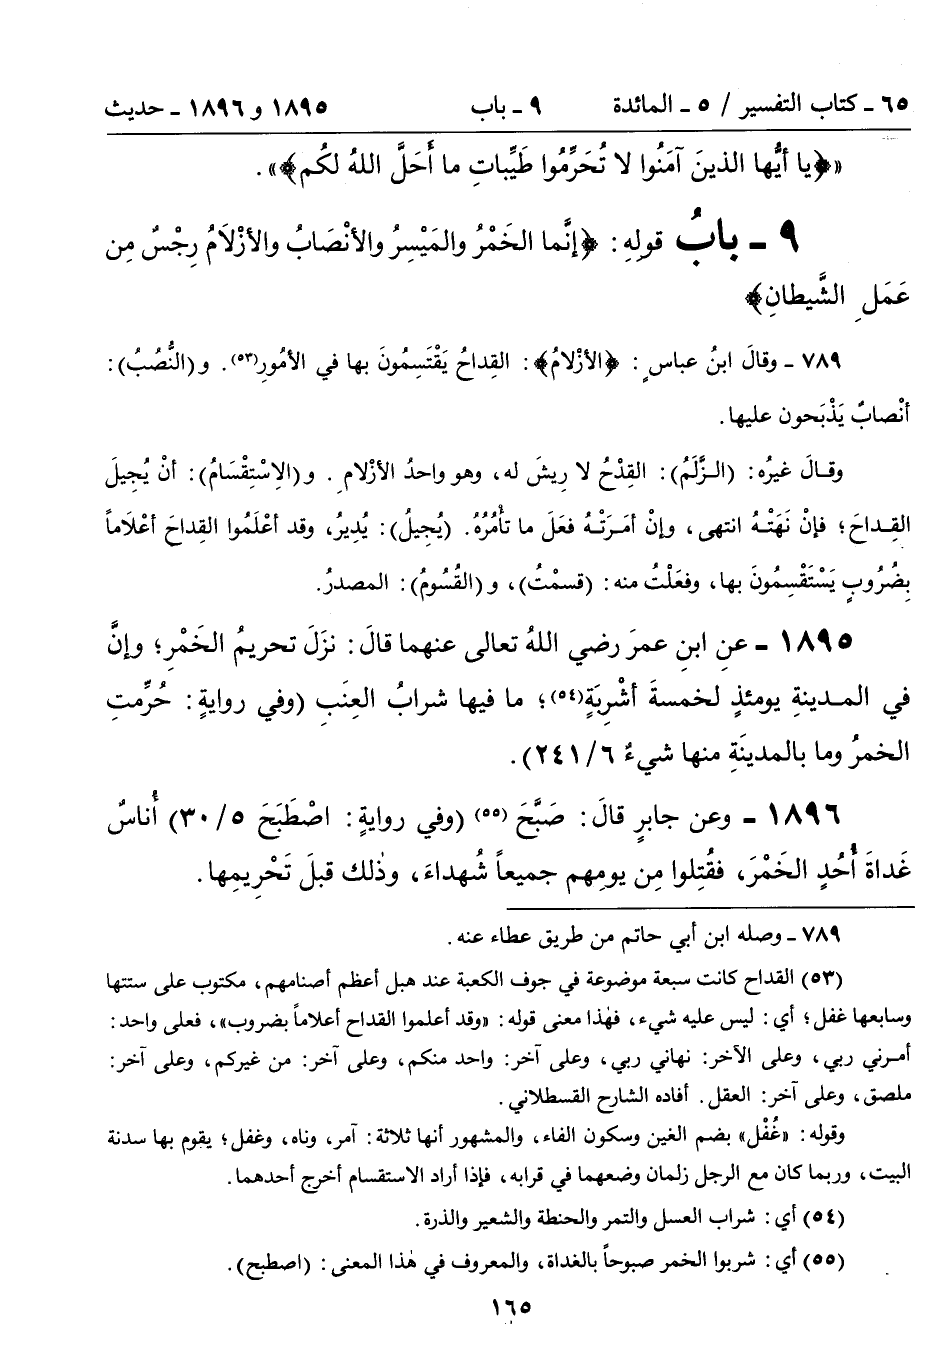 ٦٥ ـ كتاب التفسير / ٥ ـ المائدة ٩ ـ باب ١٨٩٥ و ١٨٩٦ ـ حديث
«﴿يا أيُّها الذينَ آمَنُوا لا تُحَرِّمُوا طَيِّباتِ ما أَحَلَّ اللهُ لكُم﴾».
٩ ـ بابُ قولِهِ: ﴿إنَّما الخَمْرُ والمَيْسِرُ والأنْصَابُ والأزْلَامُ رِجْسٌ مِن
عَمَلِ الشَّيطانِ﴾
٧٨٩ ـ وقالَ ابنُ عباسٍ: ﴿الأزْلامُ﴾: القِداحُ يَقْتَسِمُونَ بها في الأمُورِ(٥٣). و(النُّصُبُ):
أنْصابٌ يَذْبَحون عليها.
وقـالَ غيرُه: (الـزَّلَمُ): القِدْحُ لا رِيشَ له، وهو واحدُ الأزْلامِ. و(الاسْتِقْسَامُ): أنْ يُجِيلَ
القِـداحَ؛ فإنْ نَهَتْـهُ انتهى، وإنْ أمَـرَتْـهُ فعَلَ ما تأمُرُهُ. (يُجِيلُ): يُدِيرُ، وقد أعْلَمُوا القِداحَ أعْلَاماً
بِضُرُوبٍ يَسْتَقْسِمُونَ بها، وفعَلْتُ منه: (قسمْتُ)، و(القُسُومُ): المصدرُ.
١٨٩٥ ـ عنِ ابنِ عمرَ رضي اللهُ تعالى عنهما قالَ: نزَلَ تحريمُ الخَمْرِ؛ وإنَّ
في المـدينةِ يومئذٍ لخمسةَ أشْرِبَةٍ(٥٤)؛ ما فيها شرابُ العِنَبِ (وفي روايةٍ: حُرِّمتِ
الخمرُ وما بالمدينَةِ منها شيءٌ ٦/٢٤١).
١٨٩٦ ـ وعن جابرٍ قالَ: صَبَّحَ (٥٥) (وفي روايةٍ: اصْطَبَحَ ٥/٣٠) أُناسٌ
غَداةَ أُحُدٍ الخَمْرَ، فقُتِلوا مِن يومِهم جميعاً شُهداءَ، وذٰلك قبلَ تَحْرِيمِها.
٧٨٩ ـ وصله ابن أبي حاتم من طريق عطاء عنه.
(٥٣) القداح كانت سبعة موضوعة في جوف الكعبة عند هبل أعظم أصنامهم، مكتوب على ستتها
وسابعها غفل؛ أي: ليس عليه شيء، فهٰذا معنى قوله: «وقد أعلموا القداح أعلاماً بضروب»، فعلى واحد:
أمـرني ربي، وعلى الآخر: نهاني ربي، وعلى آخر: واحد منكم، وعلى آخر: من غيركم، وعلى آخر:
ملصق، وعلى آخر: العقل. أفاده الشارح القسطلاني.
وقوله: «غُفْل» بضم الغين وسكون الفاء، والمشهور أنها ثلاثة: آمر، وناه، وغفل؛ يقوم بها سدنة
البيت، وربما كان مع الرجل زلمان وضعهما في قرابه، فإذا أراد الاستقسام أخرج أحدهما.
(٥٤) أي: شراب العسل والتمر والحنطة والشعير والذرة.
(٥٥) أي: شربوا الخمر صبوحاً بالغداة، والمعروف في هٰذا المعنى: (اصطبح).
١٦٥